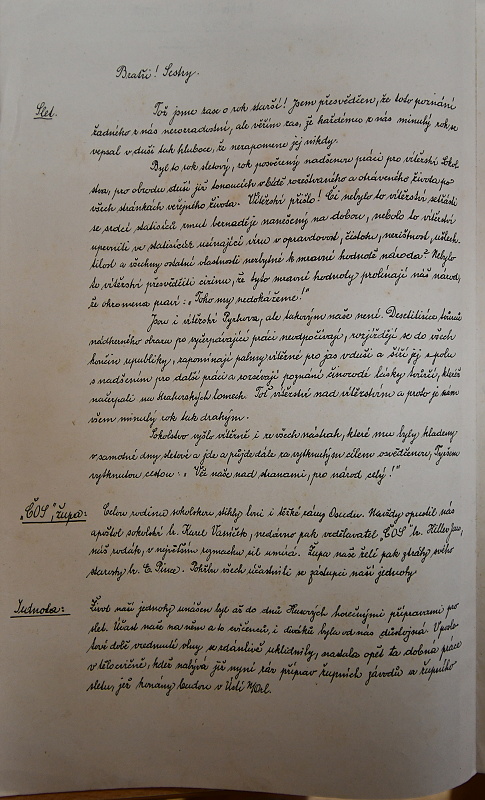 Bratři! Sestry.
Slet. Tož jsme zase o rok starší! Jsem přesvědčen, že toto poznání
žádného z nás nerozradostní, ale věřím zas, že každému z nás minulý rok se
vepsal v duši tak hluboce, že nezapomene jej nikdy.
Byl to rok sletový, rok posvěcený nadšenou prací pro vítězství Sokol
stva, pro obrodu duší již tonoucích v bídě rozeštvaného a otráveného života po
všech stránkách veřejného života. Vítězství přišlo! Či nebylo to vítězství setřásti
se srdcí statisíců smut beznaděje nanesený na dobou, nebylo to vítězství
upevniti ve statisících usínající víru v opravdovost, čistotu, nezištnost, ušlech
tilost a všechny ostatní vlastnosti nezbytné k mravní hodnotě národa? Nebylo
to vítězství přesvědčiti cizinu, že tyto mravní hodnoty prolínají náš národ,
že ohromena praví: „Toho my nedokážeme!"
Jsou i vítězství Pyrhova, ale takovým naše není. Desetitisíce tvůrců
nádherného obrazu po vyčerpávající práci neodpočívají, rozjíždějí se do všech
končin republiky, zapomínají palmy vítězné pro jas v duši a šíří jej spolu
s nadšením pro další práci a rozsévají poznání činorodé lásky tvůrčí, kterého
načerpali na Strahovských lomech. Toť vítězství nad vítězstvím a proto je nám
všem minulý rok tak drahým.
Sokolstvo vyšlo vítězně i ze všech nástrah, které mu byly kladeny
v samotné dny sletové a jde a půjde dále za vytknutým cílem osvědčenou, Tyršem
vytknutou cestou: „Věc naše nad stranami, pro národ celý!"
„ČOS", župa: Celou rodinu sokolskou stihly loni i těžké rány Osudu. Navždy opustil nás
apoštol sokolský br. Karel Vaníček, nedávno pak vzdělavatel „ČOS" br. Hiller Jan,
náš rodák, v největším rozmachu sil umírá. Župa naše želí pak ztráty svého
starosty br. E. Pince. Pohřbu všech účastnili se zástupci naší jednoty.
Jednota: Život naší jednoty unášen byl až do dnů Husových horečnými přípravami pro
slet. Účast naše na něm a to cvičenců, i diváků byla od nás důstojná. V posle
tové době vzedmuté vlny se zdánlivě uklidnily, nastala opět ta dobná práce
v tělocvičně, kdež nabývá již nyní ráz příprav župních závodů a župního
sletu, jež konány budou v Ústí n/Orl.